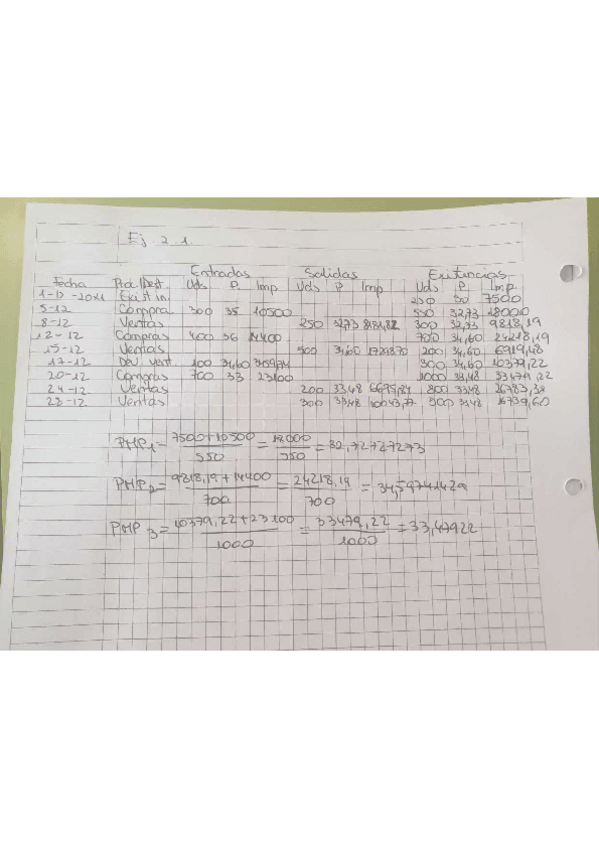 Ej 2.1.
Entradas Salidas Existencias
Fecha Uds P. Imp Uds P Imp Uds P Imp
Exist in. 250 30 7500
5-12 Compra 300 35 10500 550 32,73 18000
8-12 Ventas 250 32,73 8181,82 300 32,73 9818,19
12-12 Compras 400 36 14400 700 34,60 24218,19
15-12 Ventas 500 34,60 200 34,60 6919,48
17-12 Dev. vent. 100 34,60 3459,74 300 34,60 10379,22
20-12 Compras 700 33 23100 1000 33,48 33479,22
24-12 Ventas 200 33,48 6695,84 800 33,48 26783,38
28-12 Ventas 300 33,48 10043,77 500 33,48 16739,60
PMP1 = 7500+10500 / 550 = 18000 / 550 = 32,72727273
PMP2 = 9818,19+14400 / 700 = 24218,19 / 700 =
PMP3 = 10379,22+23100 / 1000 = 33479,22 / 1000 = 33,47922